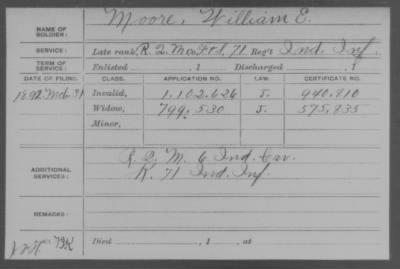 NAME OF SOLDIER: Moore, William E.
SERVICE: Late rank, R. Q. M. Co. F & S, 71 Reg't Ind. Inf.
TERM OF SERVICE: Enlisted , 1 Discharged , 1
DATE OF FILING. CLASS. APPLICATION NO. LAW. CERTIFICATE NO.
Invalid, 1,102,626 940,910
Widow, 799,530 575,935
Minor,
ADDITIONAL SERVICES: R. Q. M. 6 Ind. Cav.
K. 71 Ind. Inf.
REMARKS:
Died , 1 , at